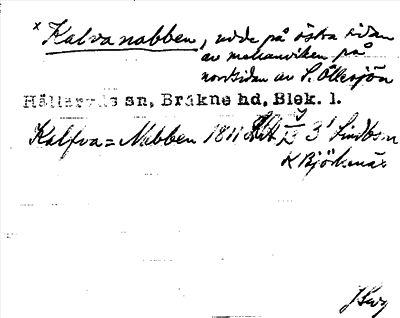 × Kalvanabben, udde på östra sidan
av mellanviken på
nordsidan av S. Öllesjön
Hällaryds sn, Bräkne hd, Blek. l.
Kalfva=Nabben 1811 3 Lindbom
K Björknäs